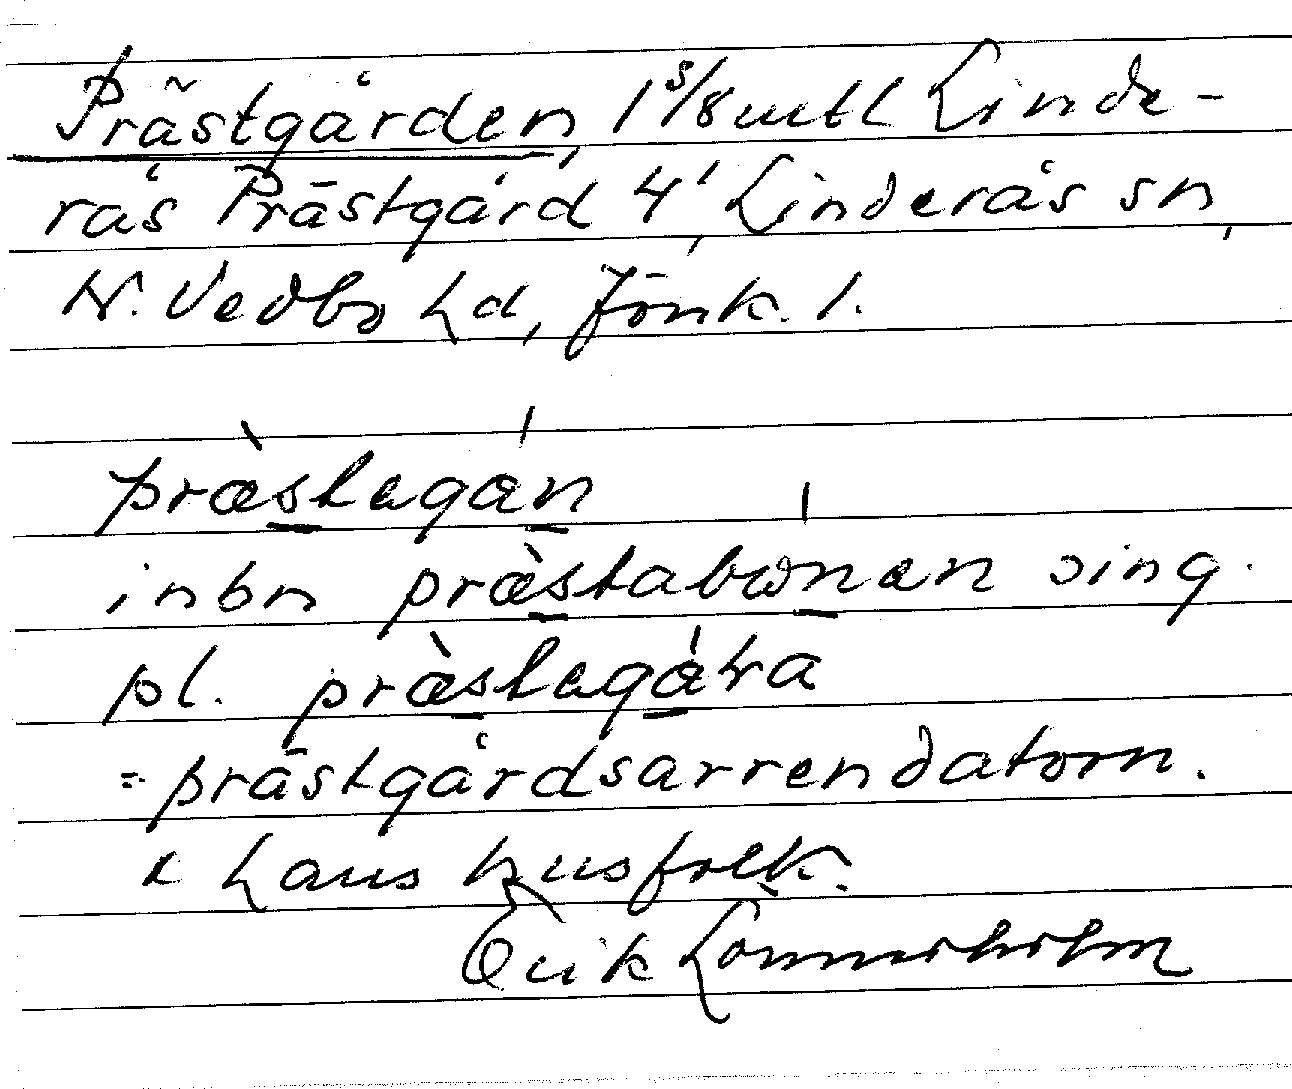 Prästgården, 1 5/8 mtl Linde-
rås Prästgård 4¹, Linderås sn,
N. Vedbo hd, Jönk. l.
præ̀stegán
inbn præ̀stabωnen sing.
pl. præ̀stegára
= prästgårdsarrendatorn.
& hans husfolk.
Erik